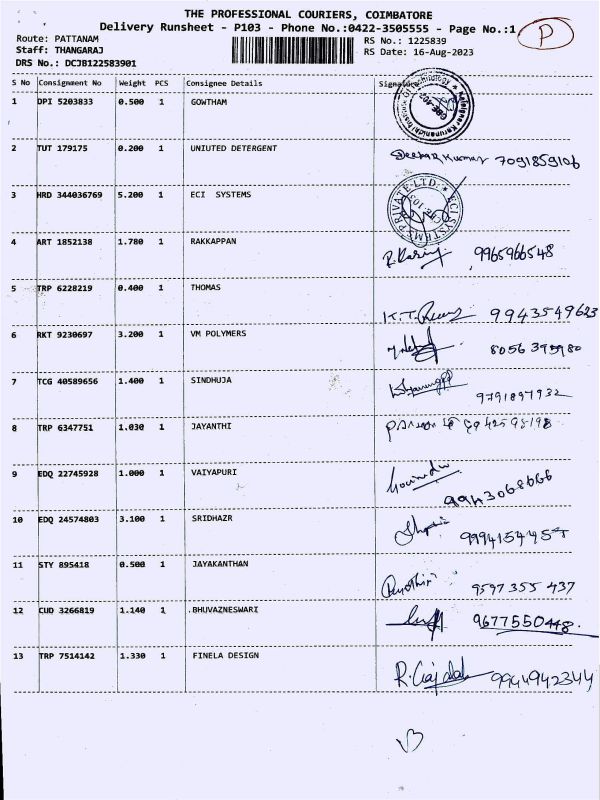 THE PROFESSIONAL COURIERS, COIMBATORE
Delivery Runsheet - P103 - Phone No.:0422-3505555 - Page No.:1
P
Route: PATTANAM
RS No.: 1225839
Staff: THANGARAJ
RS Date: 16-Aug-2023
DRS No.: DCJB122583901
S No Consignment No Weight PCS Consignee Details Signature
1 DPI 5203833 0.500 1 GOWTHAM
2 TUT 179175 0.200 1 UNIUTED DETERGENT
Deepak Kumar 7091859106
3 HRD 344036769 5.200 1 ECI SYSTEMS
ECI SYSTEMS PRIVATE LTD.
4 ART 1852138 1.780 1 RAKKAPPAN
9965966548
5 TRP 6228219 0.400 1 THOMAS
K.T. 9943549623
6 RKT 9230697 3.200 1 VM POLYMERS
8056395980
7 TCG 40589656 1.400 1 SINDHUJA
9791897932
8 TRP 6347751 1.030 1 JAYANTHI
9 EDQ 22745928 1.000 1 VAIYAPURI
9943068666
10 EDQ 24574803 3.100 1 SRIDHAZR
11 STY 895418 0.500 1 JAYAKANTHAN
9597 355 437
12 CUD 3266819 1.140 1 BHUVAZNESWARI
9677550448.
13 TRP 7514142 1.330 1 FINELA DESIGN
9944942344